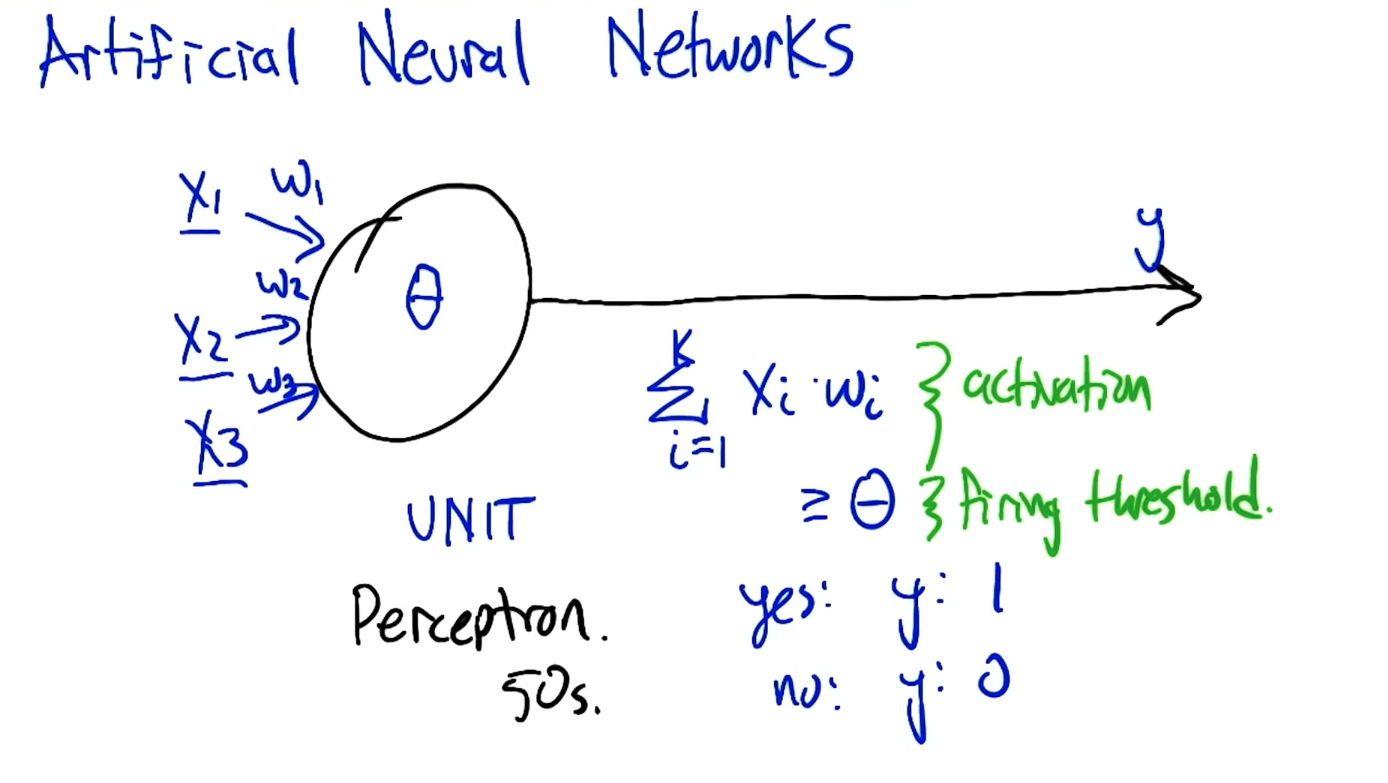 Artificial Neural Networks
x1 w1
w2
x2
w3
x3
θ
y
UNIT
Perceptron.
50s.
K
∑ xi · wi } activation
i=1
≥ θ } firing threshold.
yes: y: 1
no: y: 0